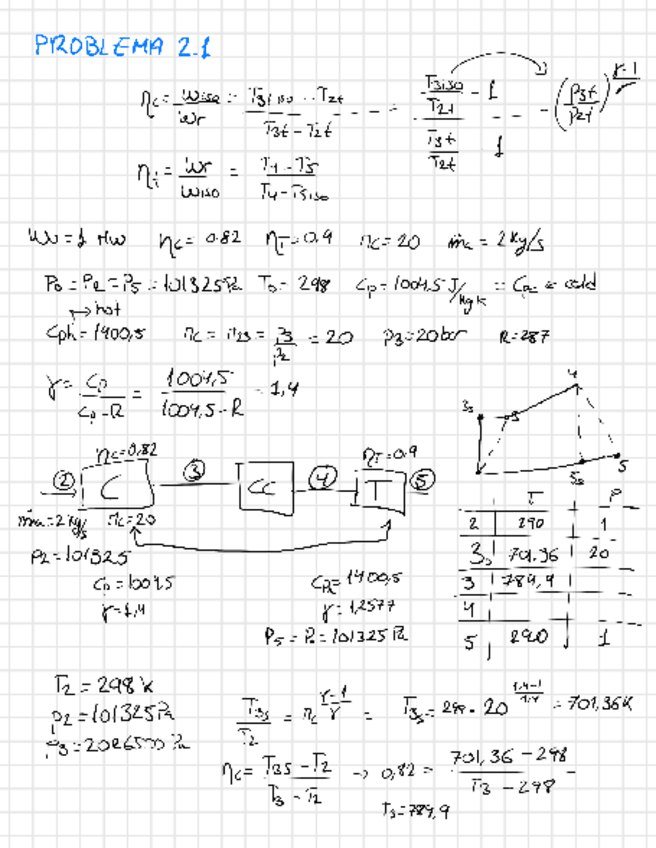 PROBLEMA 2.1
ηc = Wiso/Wr = (T3tiso - T2t)/(T3t - T2t) = (T3iso/T2t - 1)/(T3t/T2t 1) - (P3t/P2t)^(γ-1/γ)
ηt = Wr/Wiso = (T4 - T5)/(T4 - T5iso)
Wu = 1 MW ηc = 0.82 ηT = 0.9 πc = 20 ṁa = 2 kg/s
P0 = P2 = P5 = 101325 Pa T0 = 298 Cp = 1004.5 J/kgK = Cpc → cold
→ hot
Cph = 1400,5 πc = π23 = P3/P2 = 20 P3 = 20 bar R = 287
γ = Cp/(Cp - R) = 1004,5/(1004,5 - R) = 1,4
4
3s 3
5s 5
ηc = 0,82 ηT = 0.9
② C ③ CC ④ T ⑤
ṁa = 2 kg/s πc = 20
P2 = 101325
Cp = 1004.5 Cpc = 1400,5
γ = 1,4 γ = 1,2577
P5 = P0 = 101325 Pa
T P
2 290 1
3s 701.36 20
3 789,9
4
5 2900 1
T2 = 298 K
P2 = 101325 Pa
P3 = 2026500 Pa
T3s/T2 = πc^(γ-1/γ) = T3s = 298 · 20^(1.4-1/1.4) = 701,36 K
ηc = (T3s - T2)/(T3 - T2) → 0,82 = (701,36 - 298)/(T3 - 298)
T3 = 789,9